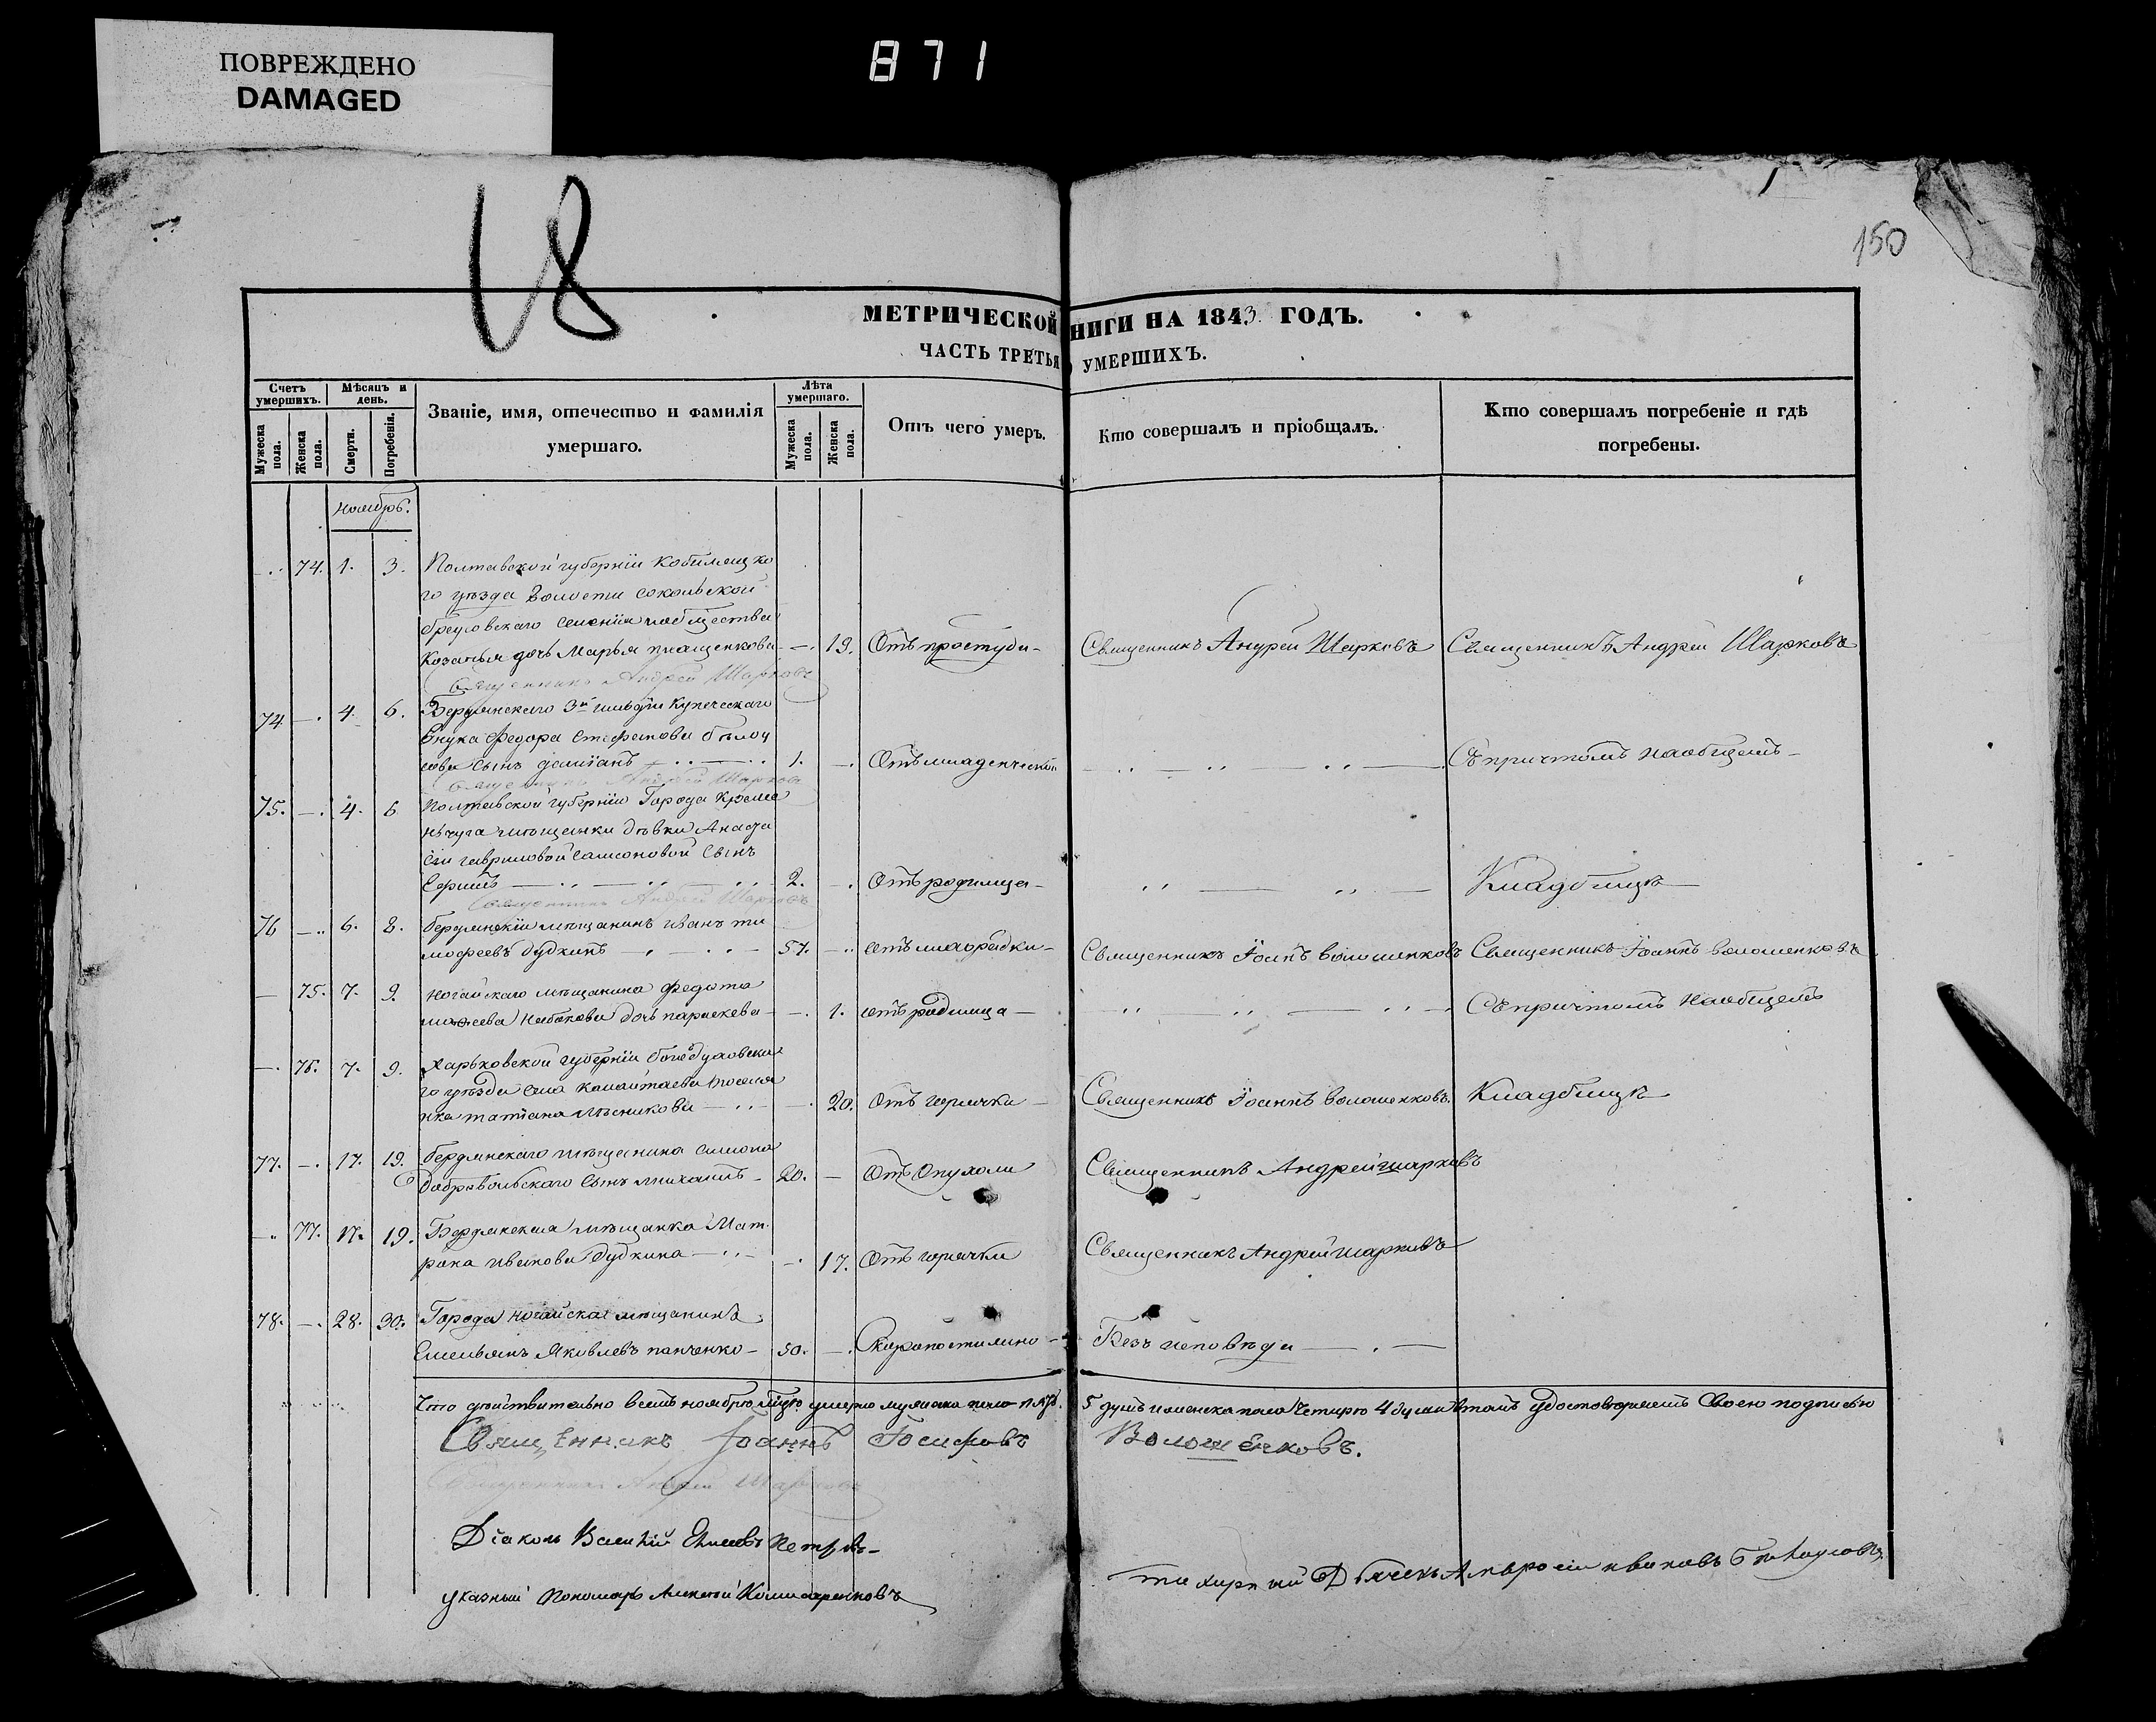 ПОВРЕЖДЕНО
DAMAGED
871
18
150
МЕТРИЧЕСКОЙ КНИГИ НА 1843. ГОДЪ.
ЧАСТЬ ТРЕТЬЯ О УМЕРШИХЪ.
Счетъ умершихъ.
Мѣсяцъ и день.
Званіе, имя, отечество и фамилія умершаго.
Лѣта умершаго.
Отъ чего умеръ.
Кто совершалъ и пріобщалъ.
Кто совершалъ погребеніе и гдѣ погребены.
Мужеска пола.
Женска пола.
Смерти.
Погребенія.
Мужеска пола.
Женска пола.
Ноябрь.
74. 1. 3. Полтавской губерніи Кобыляцко
го уѣзда волости сокольской
общества
Козачья дочь Марья 19. Отъ простуди Священникъ Андрей Шарковъ Священникъ Андрей Шарковъ
Священникъ Андрей Шарковъ
74 4. 6. Бердянскаго 3й гильдіи Купеческаго
внука Федора Стефанова
сынъ 1. Отъ младенческой Съ причтомъ на общемъ
Священникъ Андрей Шарковъ
75. 4. 6 Полтавской губерніи Города Креме
нчуга мѣщанки дѣвки Анаста
сіи гавриловой самсоновой сынъ
Ефимъ 2. Отъ родимца Кладбищѣ
Священникъ Андрей Шарковъ
76 6. 8. бердянскій мѣщанинъ иванъ ти
мофеевъ дудкинъ 57. отъ лихорадки Священникъ Іоаннъ волошенковъ Священникъ Іоаннъ волошенковъ
75. 7. 9. ногайскаго мѣщанина федота
дочь параскева 1. отъ родимца Съ причтомъ на общемъ
76. 7. 9. харьковской губерніи богодуховска
го уѣзда села поселя
нка татіана 20. Отъ горячки Священникъ Іоаннъ волошенковъ. Кладбищѣ
77. 17. 19. бердянскаго мѣщанина симона
добровольскаго сынъ михаилъ 20. Отъ Опухоли Священникъ Андрей шарковъ
77. 17. 19. Бердянская мѣщанка Мат
рона иванова дудкина 17. Отъ горячки Священникъ Андрей шарковъ
78. 28. 30. Города ногайска мѣщанинъ
Емельянъ Яковлевъ панченко 50. Скоропостижно Безъ исповѣди
Что дѣйствительно въ семъ ноябрѣ умерло мужеска пола 5 душъ и женска пола четыре 4 души въ томъ удостовѣряемъ своею подписью
Священникъ Іоаннъ Іосифовъ Волошенковъ.
Священникъ Андрей Шарковъ
Діаконъ Петровъ
указный Пономарь
Дьячекъ Амвросій ивановъ